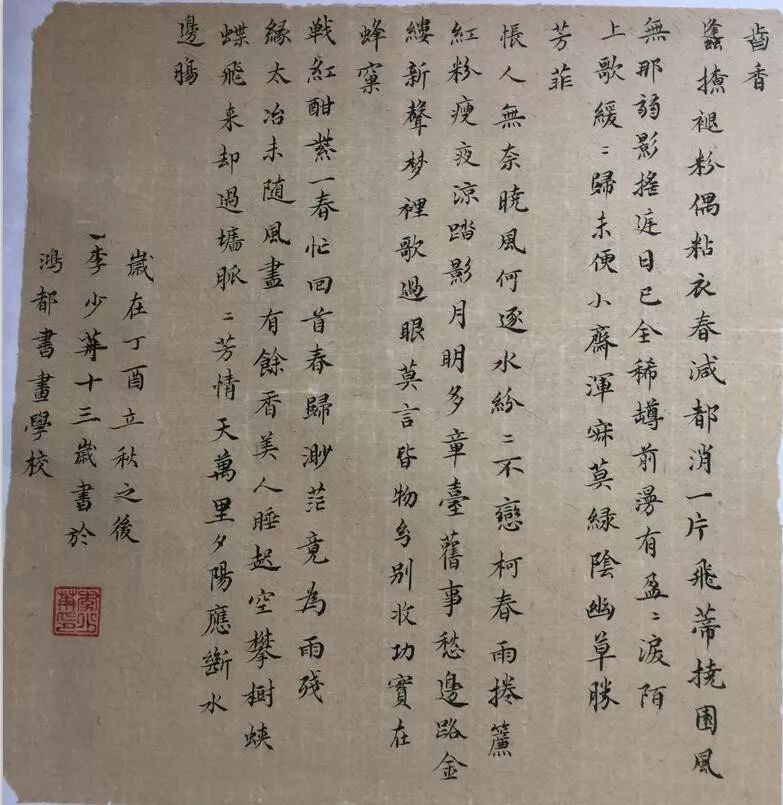 齒香
蠭撩褪粉偶粘衣春減都消一片飛蒂撓園風
無那弱影搖庭日已全稀罇前漫有盈〻淚陌
上歌緩〻歸未便小齋渾寐莫綠陰幽草勝
芳菲
悵人無奈曉風何逐水紛〻不戀柯春雨捲簾
紅粉瘦夜涼踏影月明多章臺舊事愁邊路金
縷新聲梦裡歌過眼莫言皆物兮別收功實在
蜂窠
戰紅酣紫一春忙回首春歸渺茫竟為雨殘
緣太冶未随風盡有餘香美人睡起空攀樹蛺
蝶飛来却過墻脈〻芳情天萬里夕陽應斷水
邊腸
歲在丁酉立秋之後
李少苒十三歲書於
鴻都書畫學校